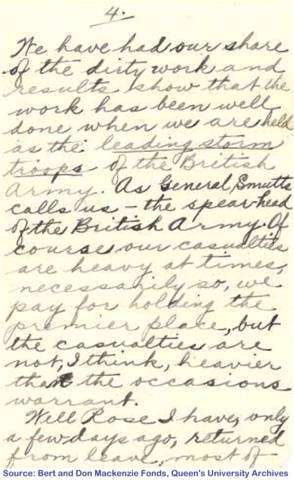 4.
We have had our share
of the dirty work and
results show that the
work has been well
done when we are held
as the leading storm
troops of the British
Army. As General Smutts
calls us - the spear head
of the British Army. Of
course our casualties
are heavy at times,
necessarily so, we
pay for holding the
premier place, but
the casualties are
not, I think, heavier
than the occasions
warrant.
Well Rose I have, only
a few days ago, returned
from leave, most of
Source: Bert and Don Mackenzie Fonds, Queen's University Archives